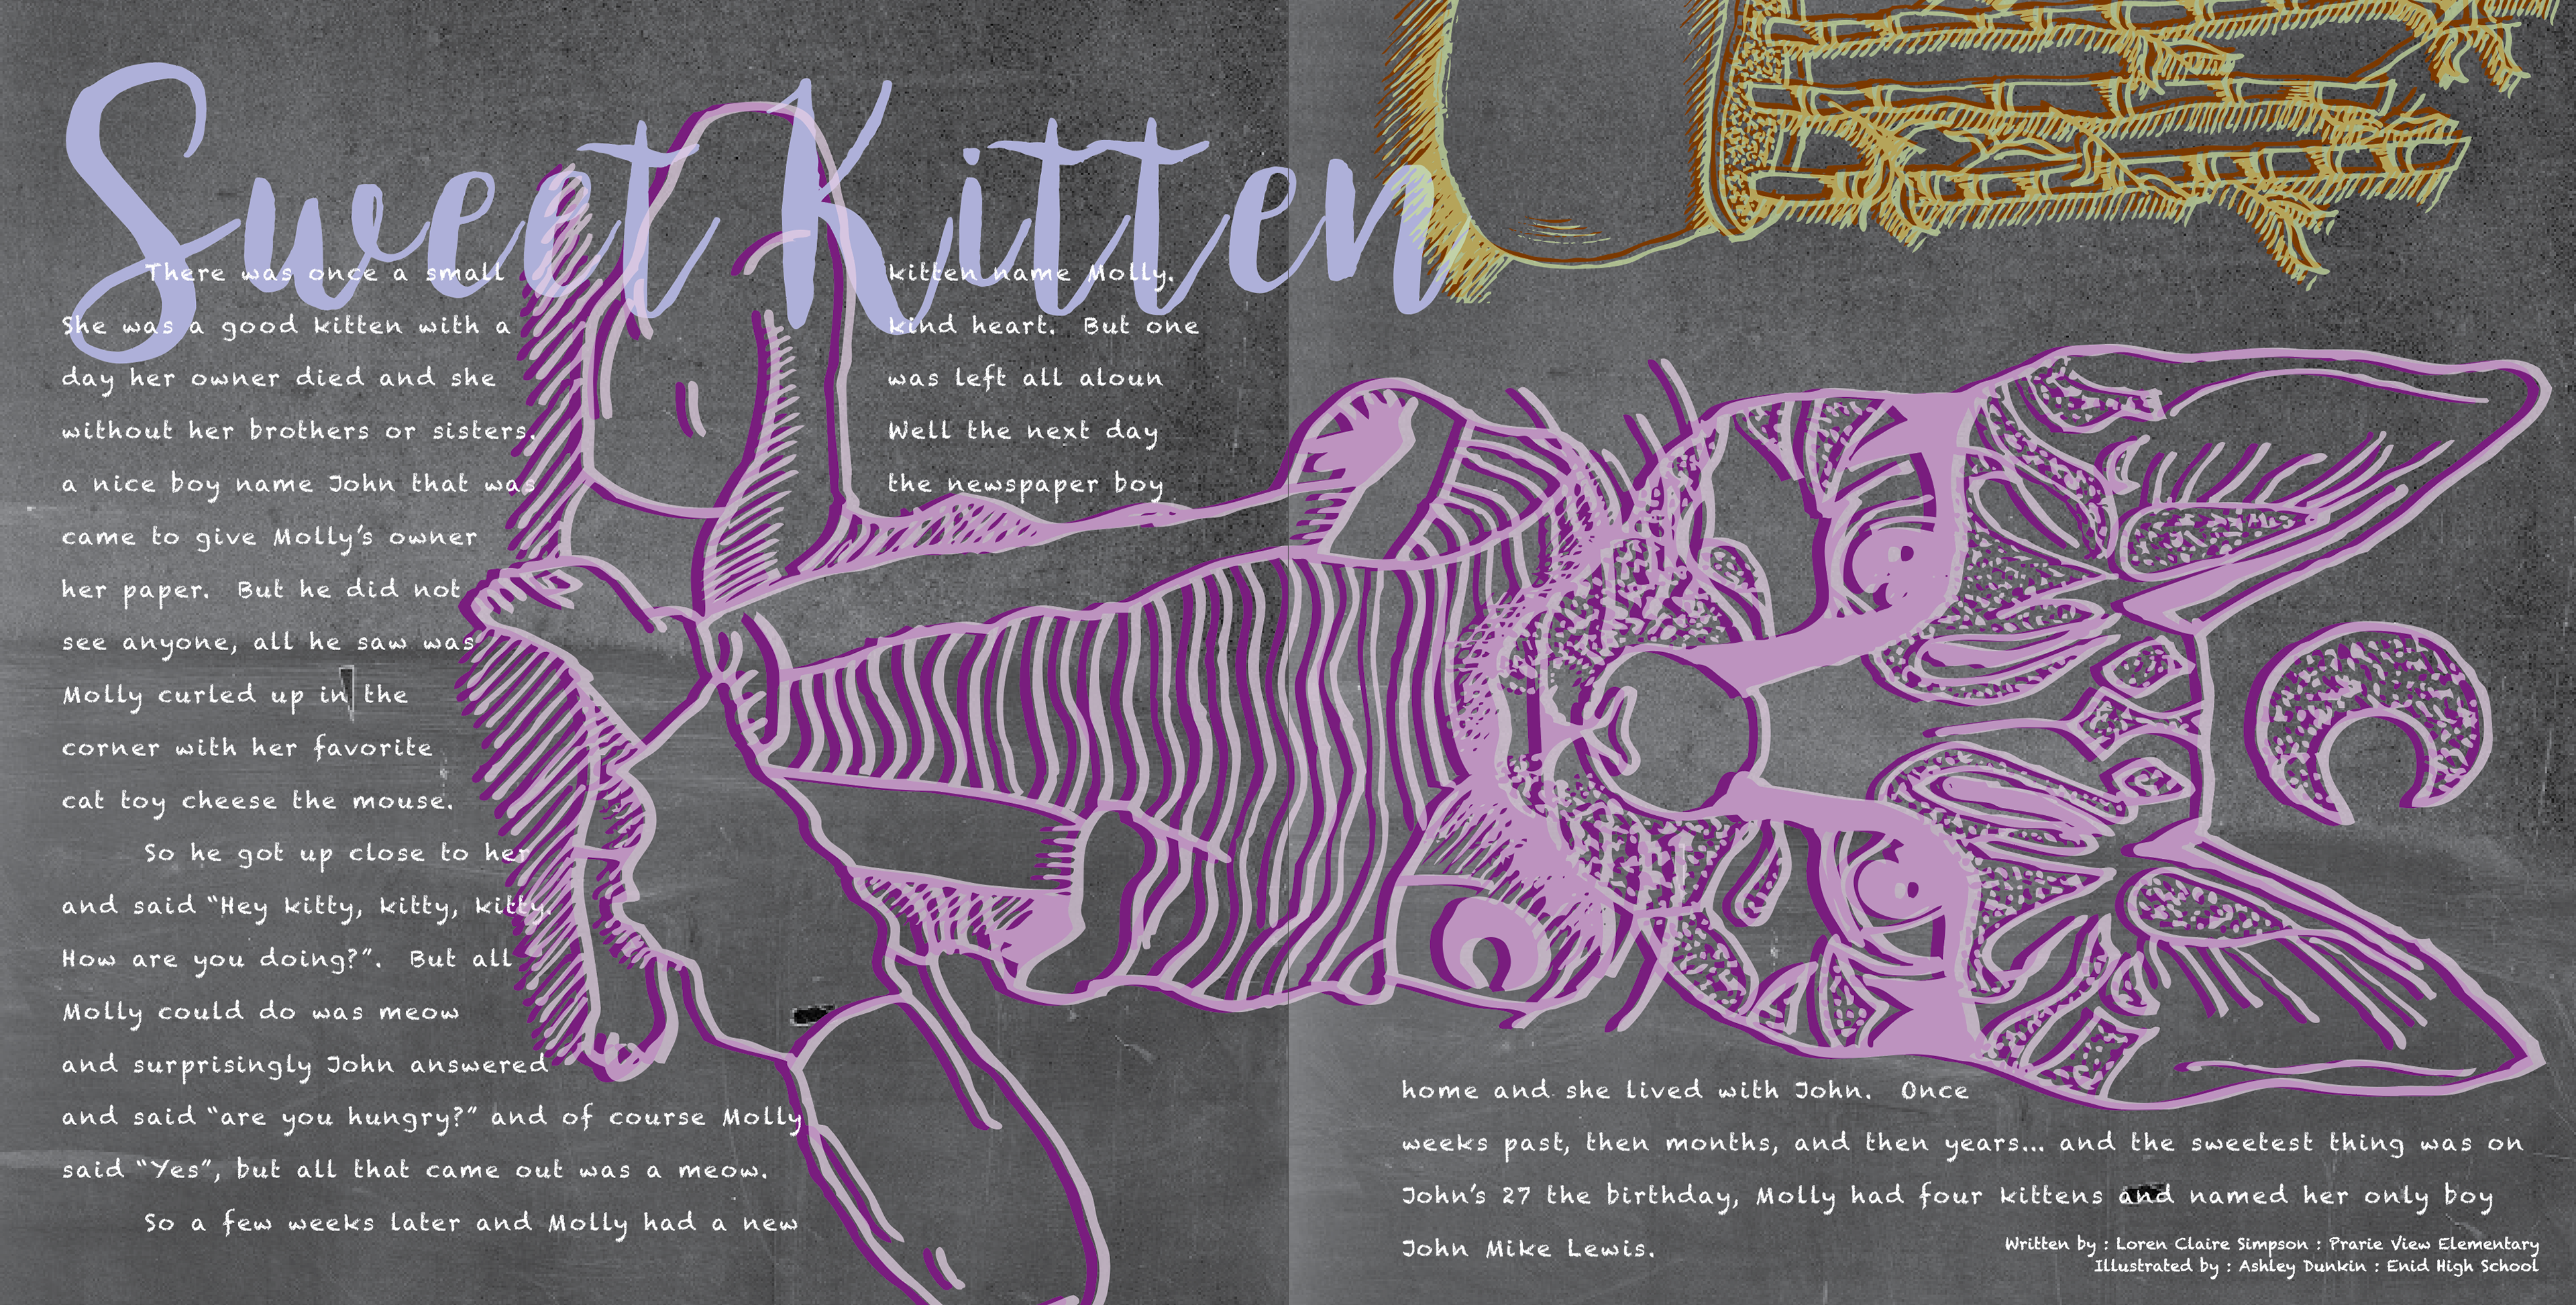 Sweet Kitten
There was once a small kitten name Molly.
She was a good kitten with a kind heart. But one
day her owner died and she was left all aloun
without her brothers or sisters. Well the next day
a nice boy name John that was the newspaper boy
came to give Molly's owner
her paper. But he did not
see anyone, all he saw was
Molly curled up in the
corner with her favorite
cat toy cheese the mouse.
So he got up close to her
and said "Hey kitty, kitty, kitty.
How are you doing?". But all
Molly could do was meow
and surprisingly John answered
and said "are you hungry?" and of course Molly
said "Yes", but all that came out was a meow.
So a few weeks later and Molly had a new
home and she lived with John. Once
weeks past, then months, and then years... and the sweetest thing was on
John's 27 the birthday, Molly had four kittens and named her only boy
John Mike Lewis.
Written by : Loren Claire Simpson : Prarie View Elementary
Illustrated by : Ashley Dunkin : Enid High School